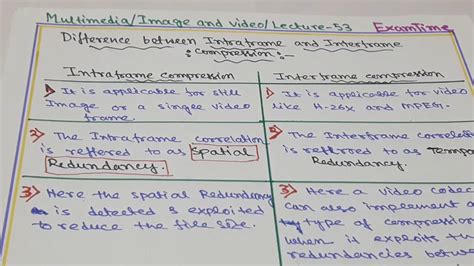 Multimedia/Image and video/Lecture-53
ExamTime
Difference between Intraframe and Interframe
compression
Intraframe compression
1) It is applicable for still
Image or a singee video
frame.
2) The Intraframe correlation
is reffered to as Spatial
Redundancy.
3) Here the spatial Redundancy
is detected & exploited
to reduce the file size.
Interframe compression
1) It is applicable for video
like H-26x and MPEG.
2) The Interframe correlatio
is referred to as Tempo
Redundancy.
3) Here a video codec
can also implement a
type of compression
when it exploits th
redundancies betwe